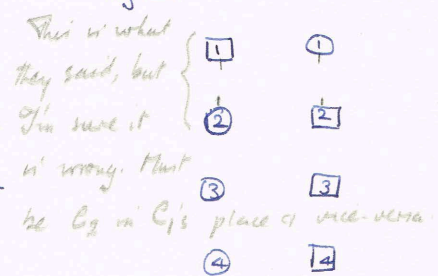 This is what 1 1
they said, but
I'm sure it 2 2
is wrong. Must 3 3
be C2 in C1's place & vice-versa.
4 4